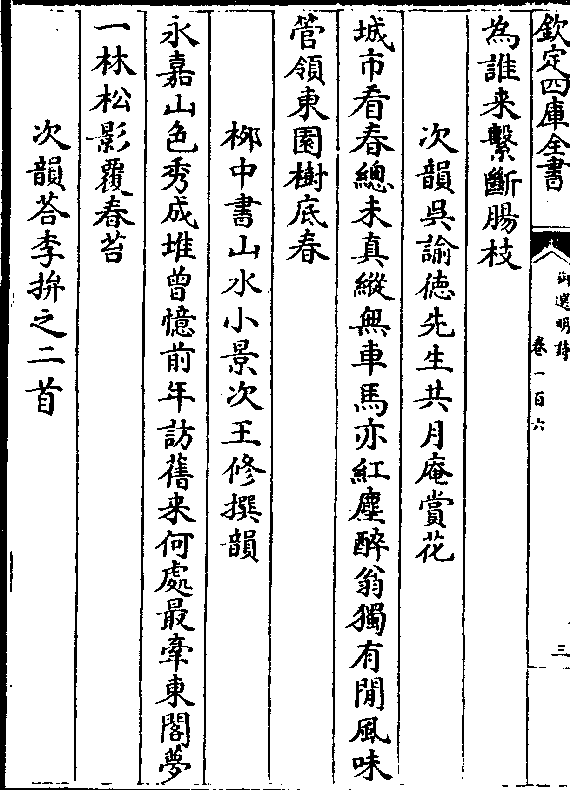 欽定四庫全書
御選明詩
卷一百六
三
為誰来繫斷腸枝
次韻吳諭徳先生共月庵賞花
城市看春總未真縱無車馬亦紅塵醉翁獨有閒風味
管領東園樹底春
柳中書山水小景次王修撰韻
永嘉山色秀成堆曾憶前年訪舊来何處最牽東閣夢
一林松影覆春苔
次韻荅李拚之二首